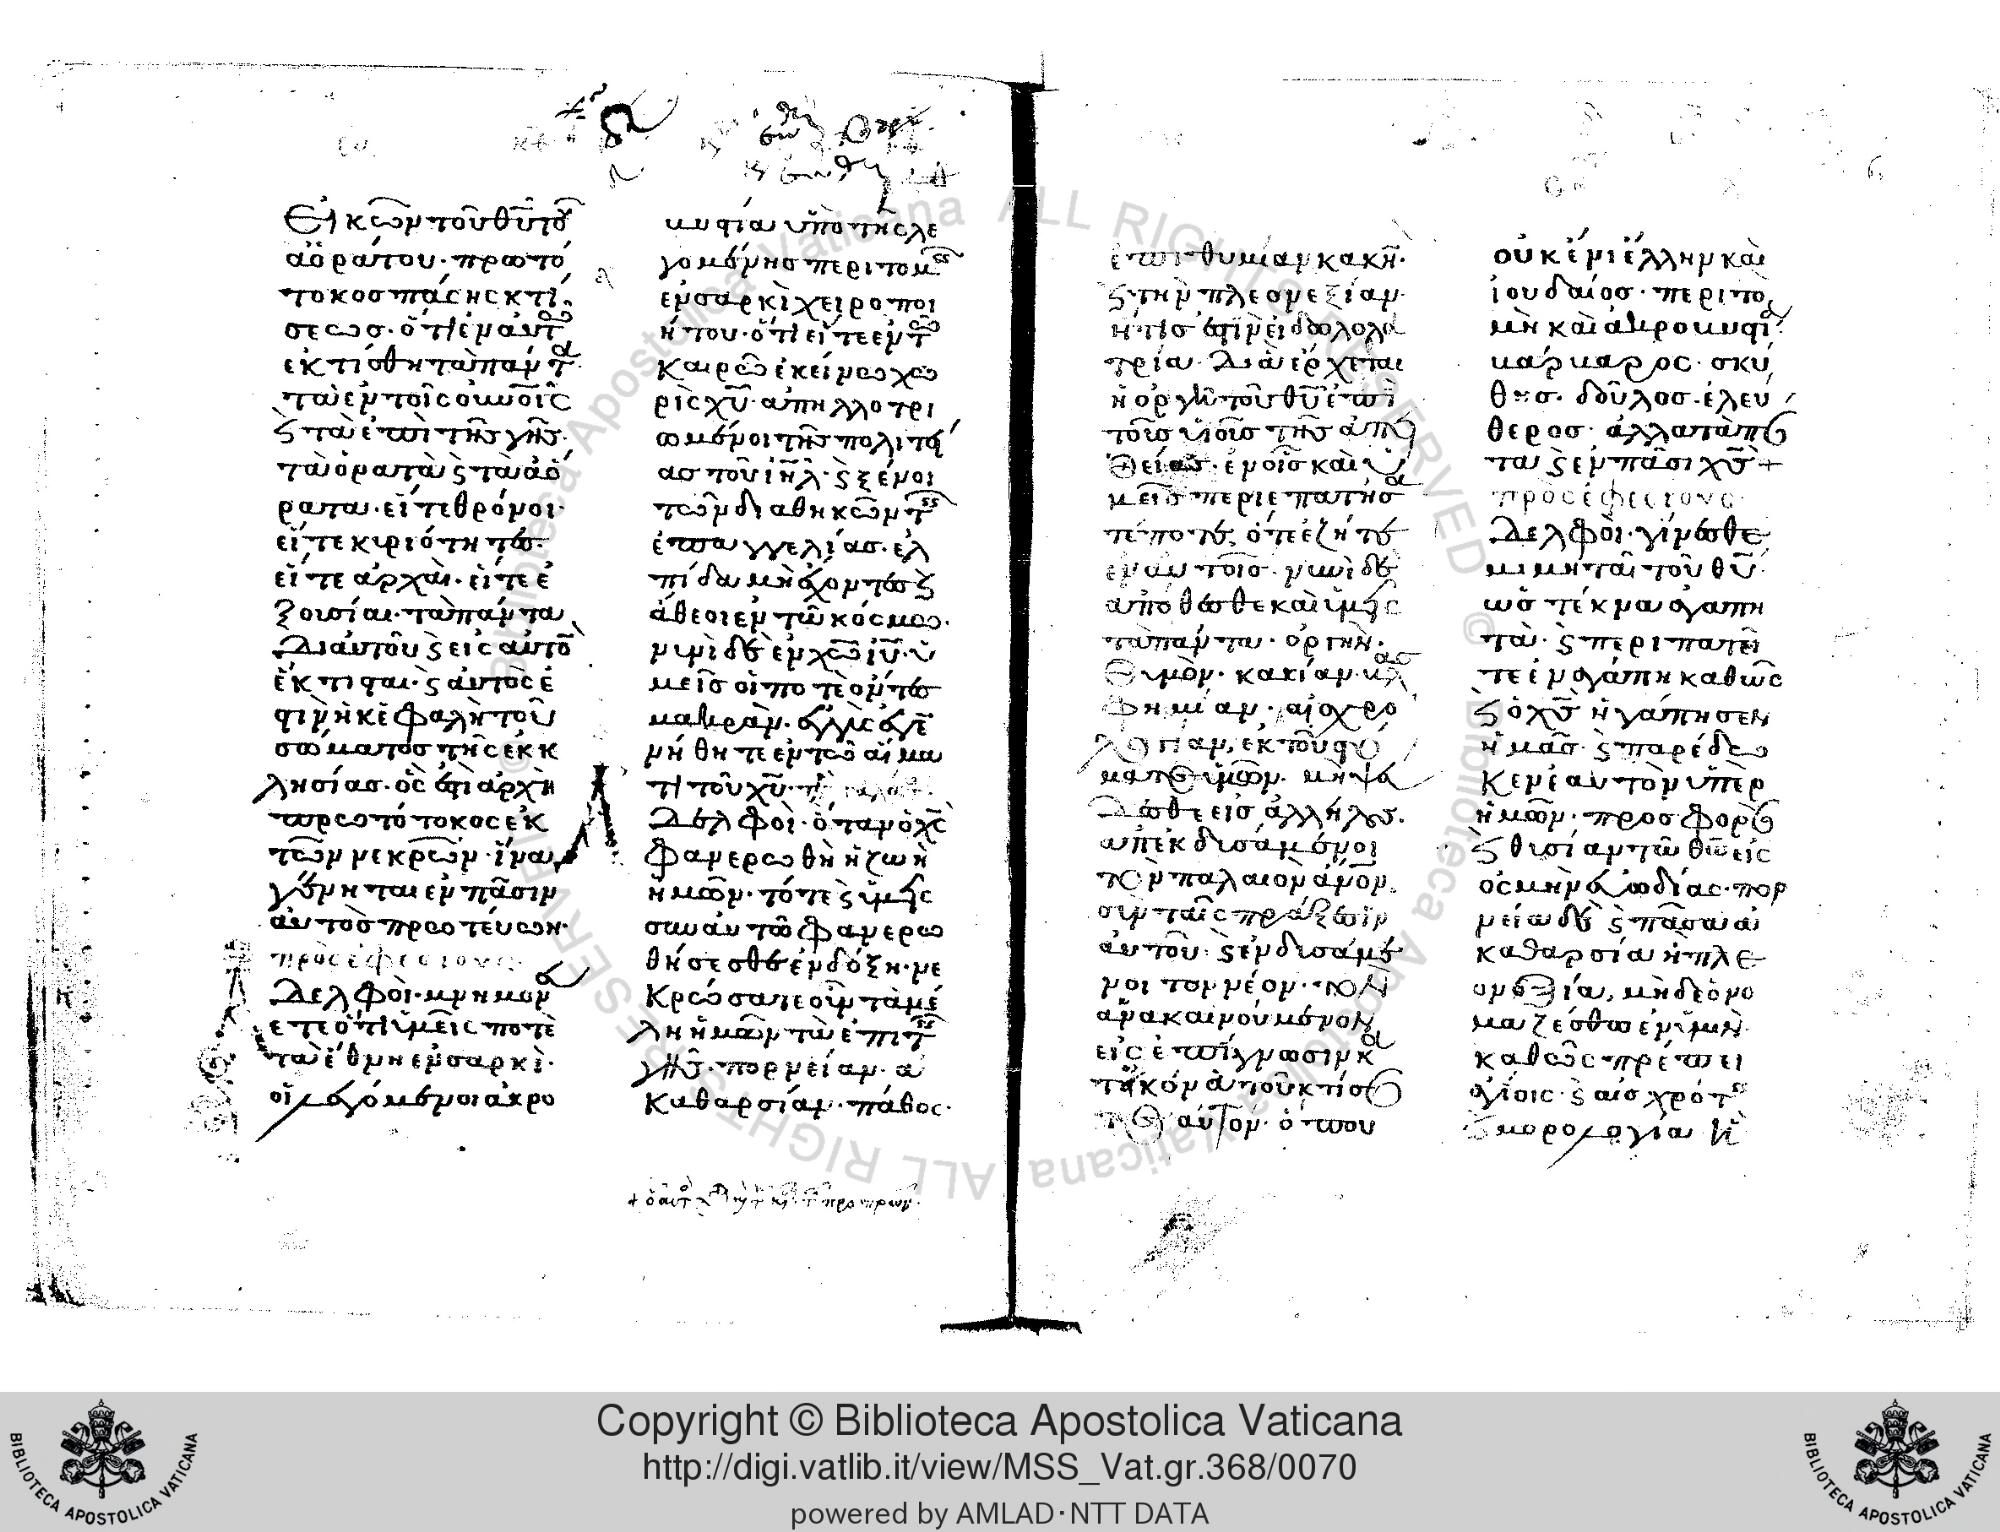 εἰκὼν τοῦ θῦ τοῦ
ἀοράτου· πρωτό
τοκοσ πάσης κτί
σεωσ· ὅτι ἐν αὐτ
ἐκτίσθη τὰ πάντ
τὰ ἐν τοῖς οὐνοῖς
ϛ τὰ ἐπὶ τῆς γῆς·
τὰ ὁρατὰ ϛ τὰ ἀό
ρατα· εἴτε θρόνοι·
εἴτε κιριότητες·
εἴτε ἀρχαὶ· εἴτε ἐ
ξοισίαι· τὰ πάντα
δι αὐτοῦ ϛ εἰς αὐτὸ
ἔκτισται· ϛ αὐτὸς ἐ
στιν ἡ κεφαλὴ τοῦ
σώματος τῆς ἐκκ
λησίας· ὅς ἐστι ἀρχὴ
πρωτότοκος ἐκ
τῶν νεκρῶν· ἵνα
γένηται ἐν πᾶσιν
αὐτὸσ πρωτεύων·
πρὸς ἐφεσίους
δελφοὶ· μνημον
ετε ὅτι ὑμεῖς ποτὲ
τὰ ἔθνη ἐν σαρκὶ·
οἱ λεγόμενοι ἀκρο
κυστία ὑπὸ τῆς λε
γομένησ περιτομ
ἐν σαρκὶ χειροποι
ήτου· ὅτι εἴτε ἐν τ
καιρῶ ἐκείνω χω
ρὶς χῦ· ἀπηλλοτρι
ωμένοι τῆς πολιτεί
ασ τοῦ ἰηλ· ϛ ξένοι
τῶν διαθηκῶν τ
ἐπαγγελίασ· ἐλ
πίδα μὴ ἔχοντες ϛ
ἄθεοι ἐν τῶ κόσμω·
νινὶ δὲ ἐν χῶ ἰῦ· ὑ
μεῖς οἱ ποτὲ ὄντες
μακρὰν· ἐγγὺς ἐγε
νήθητε ἐν τῶ αἵμα
τι τοῦ χῦ·
δελφοὶ· ὅταν ὁ χς
φανερωθῆ ἡ ζωὴ
ἡμῶν· τότε ϛ ὑμεῖς
συν αὐτῶ φανερω
θήσεσθε ἐν δόξη· νε
κρώσατε οὖν τὰ μέ
λη ἡμῶν τὰ ἐπι τ
γῆς· πορνείαν· ἀ
καθαρσίαν· πάθος·
ἐπιθυμίαν κακὴν·
ϛ τὴν πλεονεξίαν·
ἥτισ ἐστὶν εἰδωλολα
τρία· δι ἃ ἔρχεται
ἡ ὀργὴ τοῦ θῦ ἐπὶ
τοῖσ υἱοῖσ τῆσ ἀπει
θείασ· ἐν οἷς καὶ ὑ
μεῖς περιεπατήσα
τέ ποτε, ὅτε ἐζήτε
ἐν αὐτοῖσ· νυνὶ δὲ
ἀπόθεσθε καὶ ὑμεῖς
τὰ πάντα· ὀργὴν·
θυμὸν· κακίαν· βλασ
φημίαν· αἰσχρο
λογίαν, ἐκ τοῦ στό
ματοσ ὑμῶν· μὴ ψεύ
δεσθε εἰσ ἀλλήλους·
ἀπεκδισάμενοι
τὸν παλαιὸν ἄνον·
σὺν ταῖς πράξεσιν
αὐτοῦ· ϛ ἐνδισάμε
νοι τον νέον· τὸν
ἀνακαινούμενον
εἰς ἐπίγνωσιν κ
τ εἰκόνα τοῦ κτίσαν
τοσ αὐτον· ὅπου
οὐκ ἔνι ἕλλην καὶ
ἰουδαίοσ· περιτο
μὴ καὶ ἀκροκυστί
βάρβαρος· σκύ
θησ· δοῦλοσ· ἐλεύ
θεροσ· ἀλλα τὰ πάν
τα ϛ ἐν πᾶσι χς +
πρὸς ἐφεσίους
δελφοὶ· γίνεσθε
μιμηταὶ τοῦ θῦ·
ὡσ τέκνα ἀγαπη
τὰ· ϛ περιπατεῖ
τε ἐν ἀγάπη καθὼς
ϛ ὁ χς ἠγάπησεν
ἡμᾶσ· ϛ παρέδω
κεν ἑαυτὸν ὑπὲρ
ἡμῶν· προσφορὰν
ϛ θισίαν τῶ θῶ εἰς
ὀσμὴν εὐωδίας· πορ
νεία δὲ ϛ πᾶσα ἀ
καθαρσία ἢ πλε
ονεξία, μηδὲ ὀνο
μαζέσθω ἐν ὑμῖν·
καθῶς πρέπει
ἁγίοις· ϛ αἰσχρότ
ϛ μορολογία ἢ